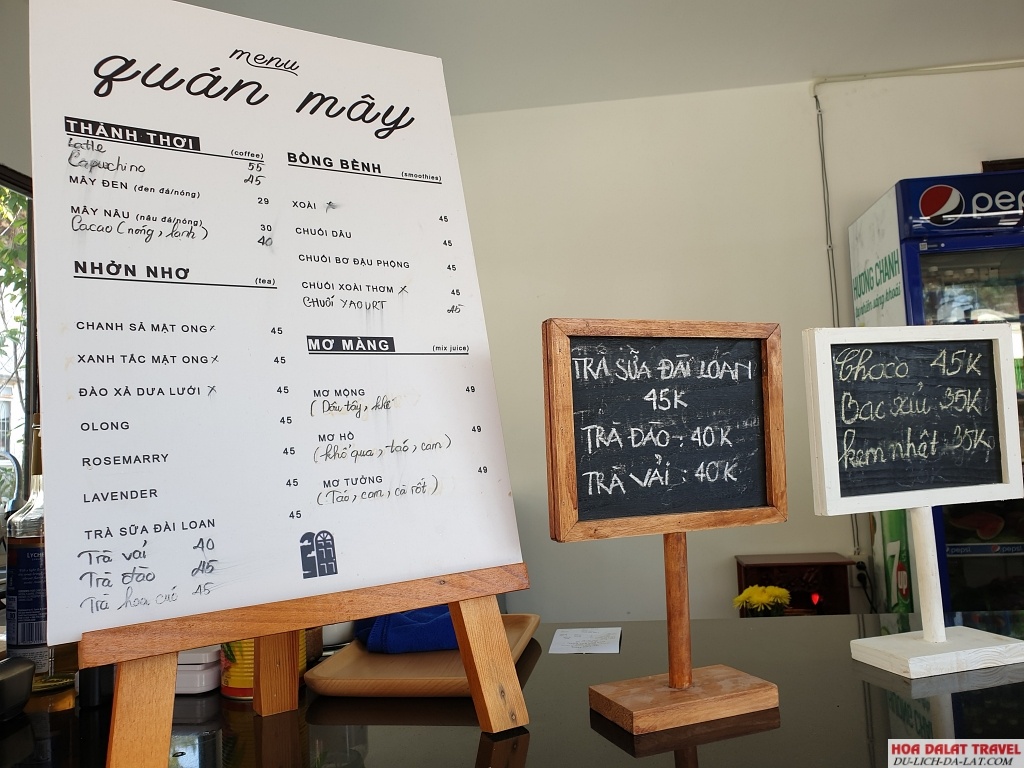 menu
quán mây
THÀNH THƠI (coffee)
Latle 55
Capuchino 45
MÂY ĐEN (đen đá/nóng) 29
MÂY NÂU (nâu đá/nóng) 30
Cacao (nóng, lạnh) 40
NHỞN NHƠ (tea)
CHANH SẢ MẬT ONG x 45
XANH TẮC MẬT ONG x 45
ĐÀO XẢ DƯA LƯỚI x 45
OLONG 45
ROSEMARRY 45
LAVENDER 45
TRÀ SỮA ĐÀI LOAN 45
Trà vải 40
Trà đào 45
Trà hoa cúc 45
BỒNG BỀNH (smoothies)
XOÀI x 45
CHUỐI DÂU 45
CHUỐI BƠ ĐẬU PHỘNG 45
CHUỐI XOÀI THƠM x 45
CHUỐI YAOURT 45
MƠ MÀNG (mix juice)
MƠ MỘNG 49
(Dâu tây, khế
MƠ HỒ 49
(khổ qua, táo, cam)
MƠ TƯỞNG 49
(Táo, cam, cà rốt)
TRÀ SỮA ĐÀI LOAN
45K
TRÀ ĐÀO : 40K
TRÀ VẢI : 40K
Choco 45K
Bạc xỉu 35K
kem nhật : 35K
pepsi
HƯƠNG CHANH
pepsi
7
LYCHEE
HOA DALAT TRAVEL
DU-LICH-DA-LAT.COM